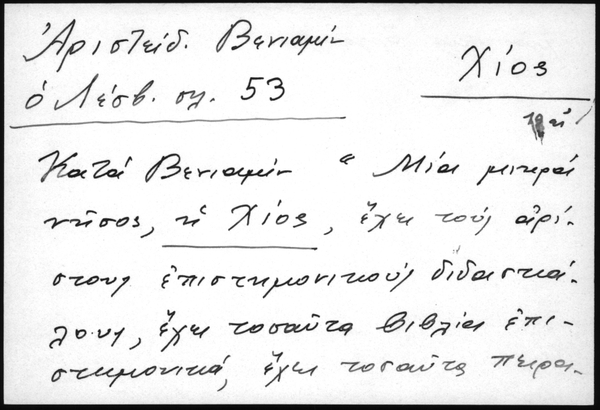 Ἀριστείδ. Βενιαμίν
ὁ Λέσβ. σλ. 53
Χίος
Κατά Βενιαμίν " Μία μικρά
νῆσος, ἡ Χίος, ἔχει τούς ἀρί-
στους ἐπιστημονικούς διδασκά-
λους, ἔχει τοσαῦτα βιβλία ἐπι-
στημονικά, ἔχει τοσαῦτα πειρα-